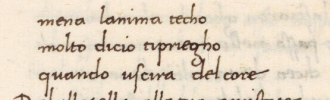 mena lanima techo
molto dicio tipriegho
quando uscira delcore